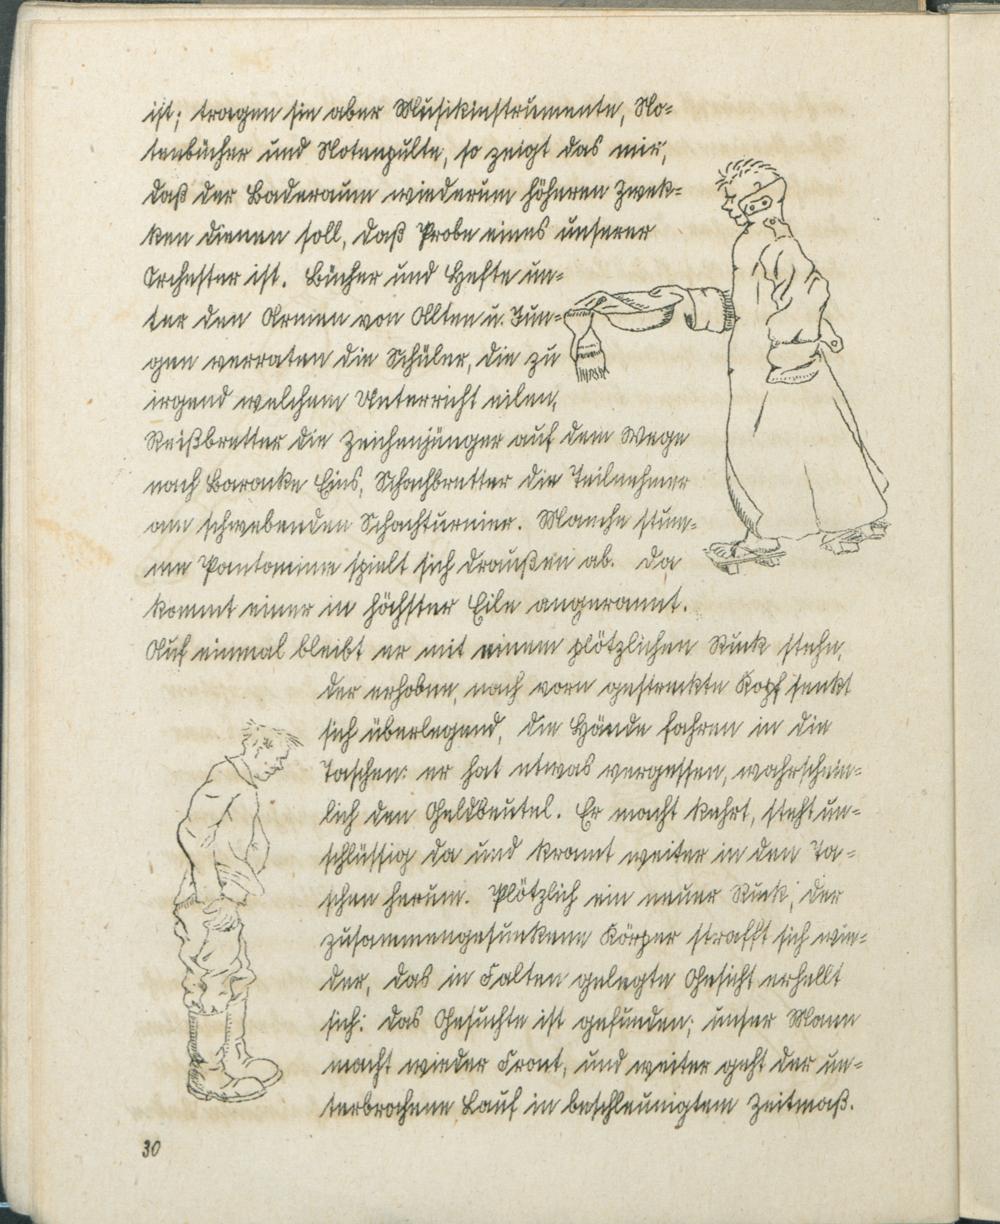 ist; tragen sie aber Musikinstrumente, No-
tenbücher und Notenpulte, so zeigt das mir,
daß der Baderaum wiederum höheren Zwek-
ken dienen soll, daß Probe eines unserer
Orchester ist. Bücher und Hefte un-
ter den Armen von Alten u. Jun-
gen verraten die Schüler, die zu
irgend welchem Unterricht eilen,
Reißbretter die Zeichenjünger auf dem Wege
nach Baracke Eins, Schachbretter die Teilnehmer
am schwebenden Schachturnier. Manche stum-
me Pantomime spielt sich draußen ab. Da
kommt einer in höchster Eile angerannt.
Auf einmal bleibt er mit einem plötzlichen Ruck stehn,
der erhobne, nach vorn gestreckte Kopf senkt
sich überlegend, die Hände fahren in die
Taschen: er hat etwas vergessen, wahrschein-
lich den Geldbeutel. Er macht kehrt, steht un-
schlüssig da und kramt weiter in den Ta-
schen herum. Plötzlich ein neuer Ruck, der
zusammengesunkene Körper strafft sich wie-
der, das in Falten gelegte Gesicht erhellt
sich: das Gesuchte ist gefunden; unser Mann
macht wieder Front, und weiter geht der un-
terbrochene Lauf in beschleunigtem Zeitmaß.
30